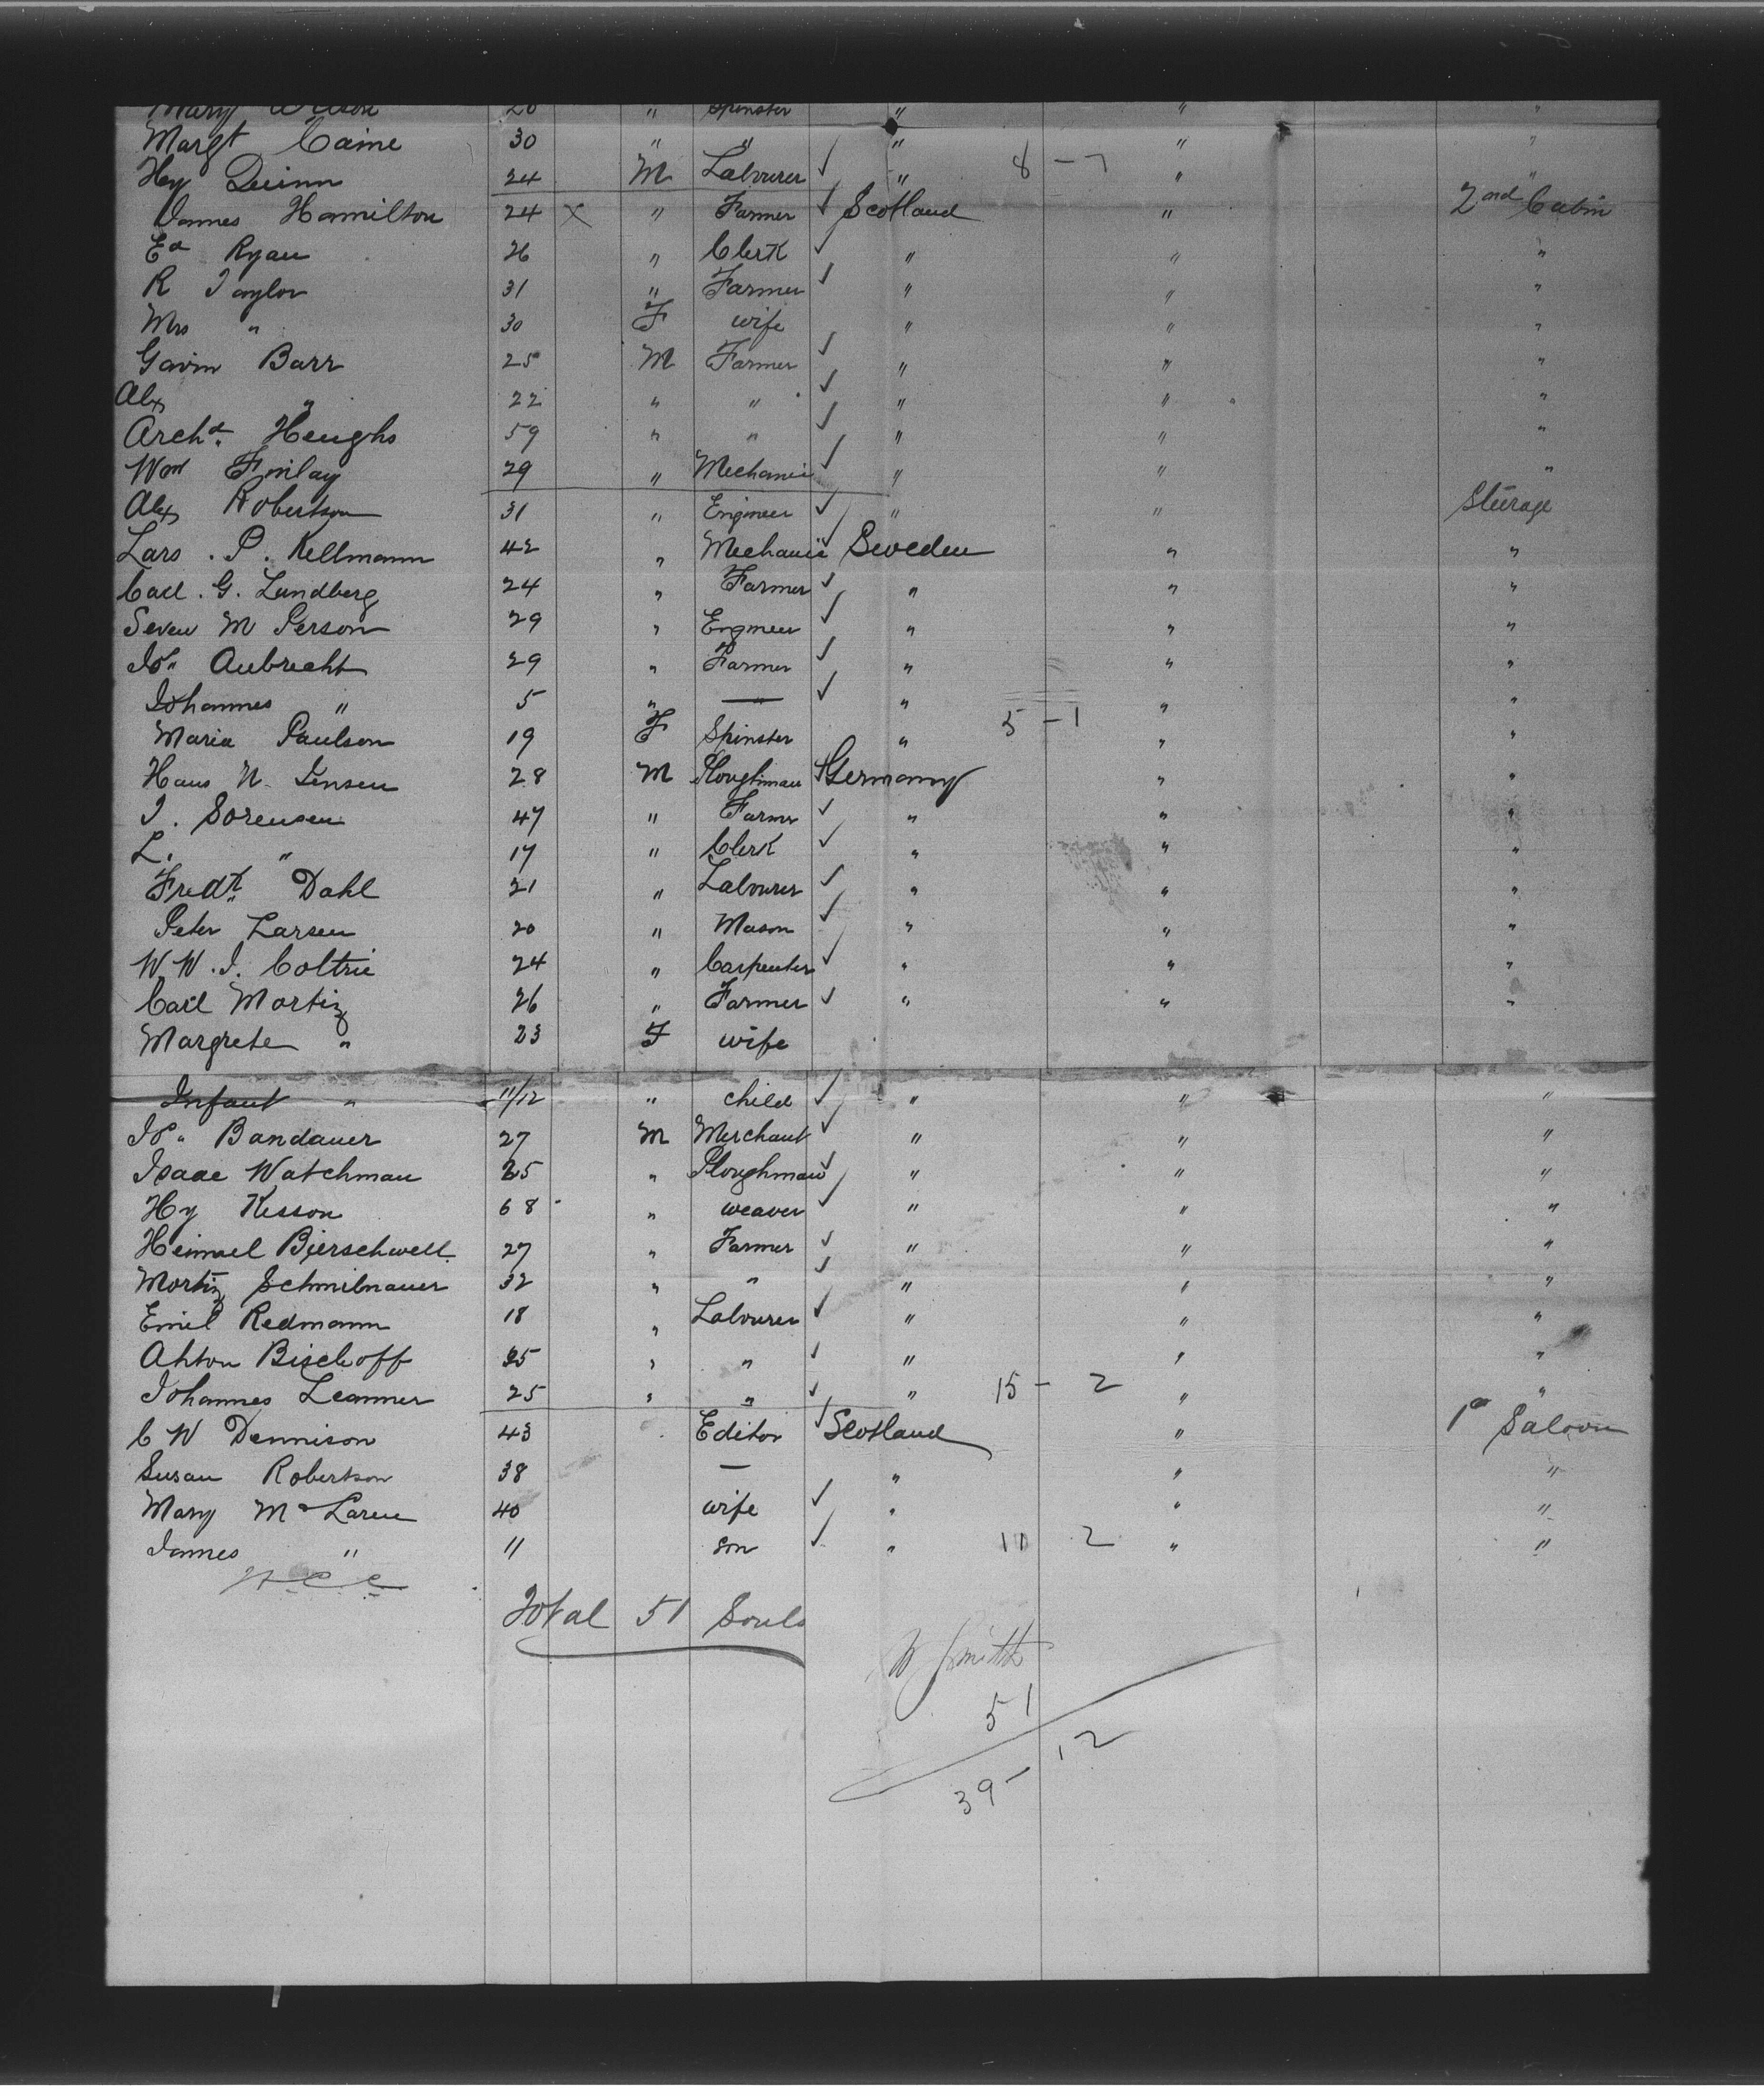 Mary Wilson 20 " Spinster " " "
Margt Caine 30 " " " " "
Hy Quinn 24 M Labourer " 8 - 7 " "
James Hamilton 24 X " Farmer Scotland " 2nd Cabin
Ed Ryan 26 " Clerk " " "
R Taylor 31 " Farmer " " "
Mrs " 30 F wife " " "
Gavin Barr 25 M Farmer " " "
Alex " 22 " " " " "
Archd. Heughs 59 " " " " "
Wm Finlay 29 " Mechanic " " "
Alex Robertson 31 " Engineer " " Steerage
Lars . P . Kellmann 42 " Mechanic Sweden " "
Carl . G. Lundberg 24 " Farmer " " "
Seven M Person 29 " Engineer " " "
Jos. Aubrecht 29 " Farmer " " "
Johannes " 5 " — " " "
Maria Paulson 19 F Spinster " 5 - 1 " "
Hans N. Jensen 28 M Ploughman Germany " "
J. Sorensen 47 " Farmer " " "
L. " 17 " Clerk " " "
Fredk. Dahl 21 " Labourer " " "
Peter Larsen 20 " Mason " " "
W. W. J. Coltrie 24 " Carpenter " " "
Carl Mortiz 26 " Farmer " " "
Margrete " 23 F wife
Infant " 11/12 " child " " "
Js. Bandauer 27 M Merchant " " "
Isaac Watchman 25 " Ploughman " " "
Hy Kesson 68 " weaver " " "
Heimael Bierschwell 27 " Farmer " " "
Mortiz Schmilnauer 32 " " " " "
Emil Redmann 18 " Labourer " " "
Anton Bischoff 35 " " " " "
Johannes Leanner 25 " " " 15 - 2 " "
C W Dennison 43 Editor Scotland " 1st Saloon
Susan Robertson 38 — " " "
Mary McLaren 40 wife " " "
James " 11 son " 11 2 " "
Total 51 Souls
W Smith
51
39 - 12